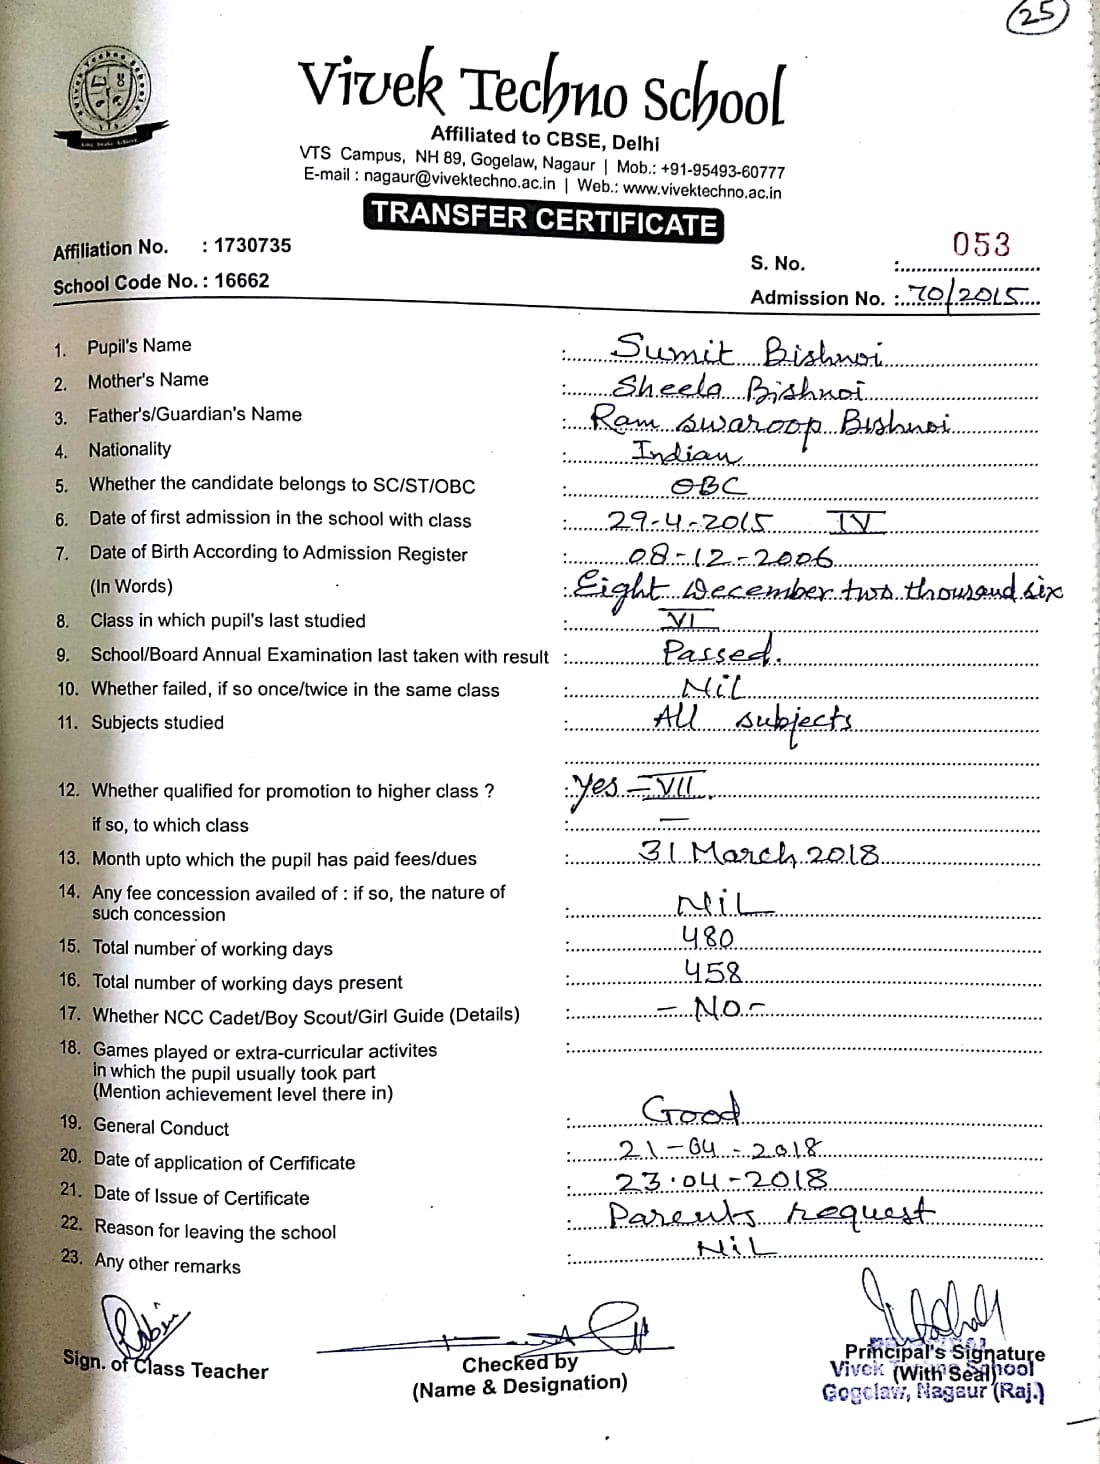 25
Vivek Techno School
Affiliated to CBSE, Delhi
VTS Campus, NH 89, Gogelaw, Nagaur | Mob.: +91-95493-60777
E-mail : nagaur@vivektechno.ac.in | Web.: www.vivektechno.ac.in
TRANSFER CERTIFICATE
Affiliation No. : 1730735
S. No. : 053
School Code No. : 16662
Admission No. : 70/2015
1. Pupil's Name : Sumit Bishnoi
2. Mother's Name : Sheela Bishnoi
3. Father's/Guardian's Name : Ram swaroop Bishnoi
4. Nationality : Indian
5. Whether the candidate belongs to SC/ST/OBC : OBC
6. Date of first admission in the school with class : 29-4-2015 IV
7. Date of Birth According to Admission Register : 08-12-2006
(In Words) : Eight December two thousand six
8. Class in which pupil's last studied : VI
9. School/Board Annual Examination last taken with result : Passed.
10. Whether failed, if so once/twice in the same class : Nil
11. Subjects studied : All subjects
12. Whether qualified for promotion to higher class ? : Yes - VII
if so, to which class : —
13. Month upto which the pupil has paid fees/dues : 31 March 2018
14. Any fee concession availed of : if so, the nature of
such concession : NiL
15. Total number of working days : 480
16. Total number of working days present : 458
17. Whether NCC Cadet/Boy Scout/Girl Guide (Details) : - No -
18. Games played or extra-curricular activites :
in which the pupil usually took part
(Mention achievement level there in)
19. General Conduct : Good
20. Date of application of Cerfificate : 21-04-2018
21. Date of Issue of Certificate : 23.04-2018
22. Reason for leaving the school : Parents request
23. Any other remarks : NiL
Sign. of Class Teacher
Checked by
(Name & Designation)
Principal's Signature
(With Seal)
Vivek School
Gogelaw, Nagaur (Raj.)